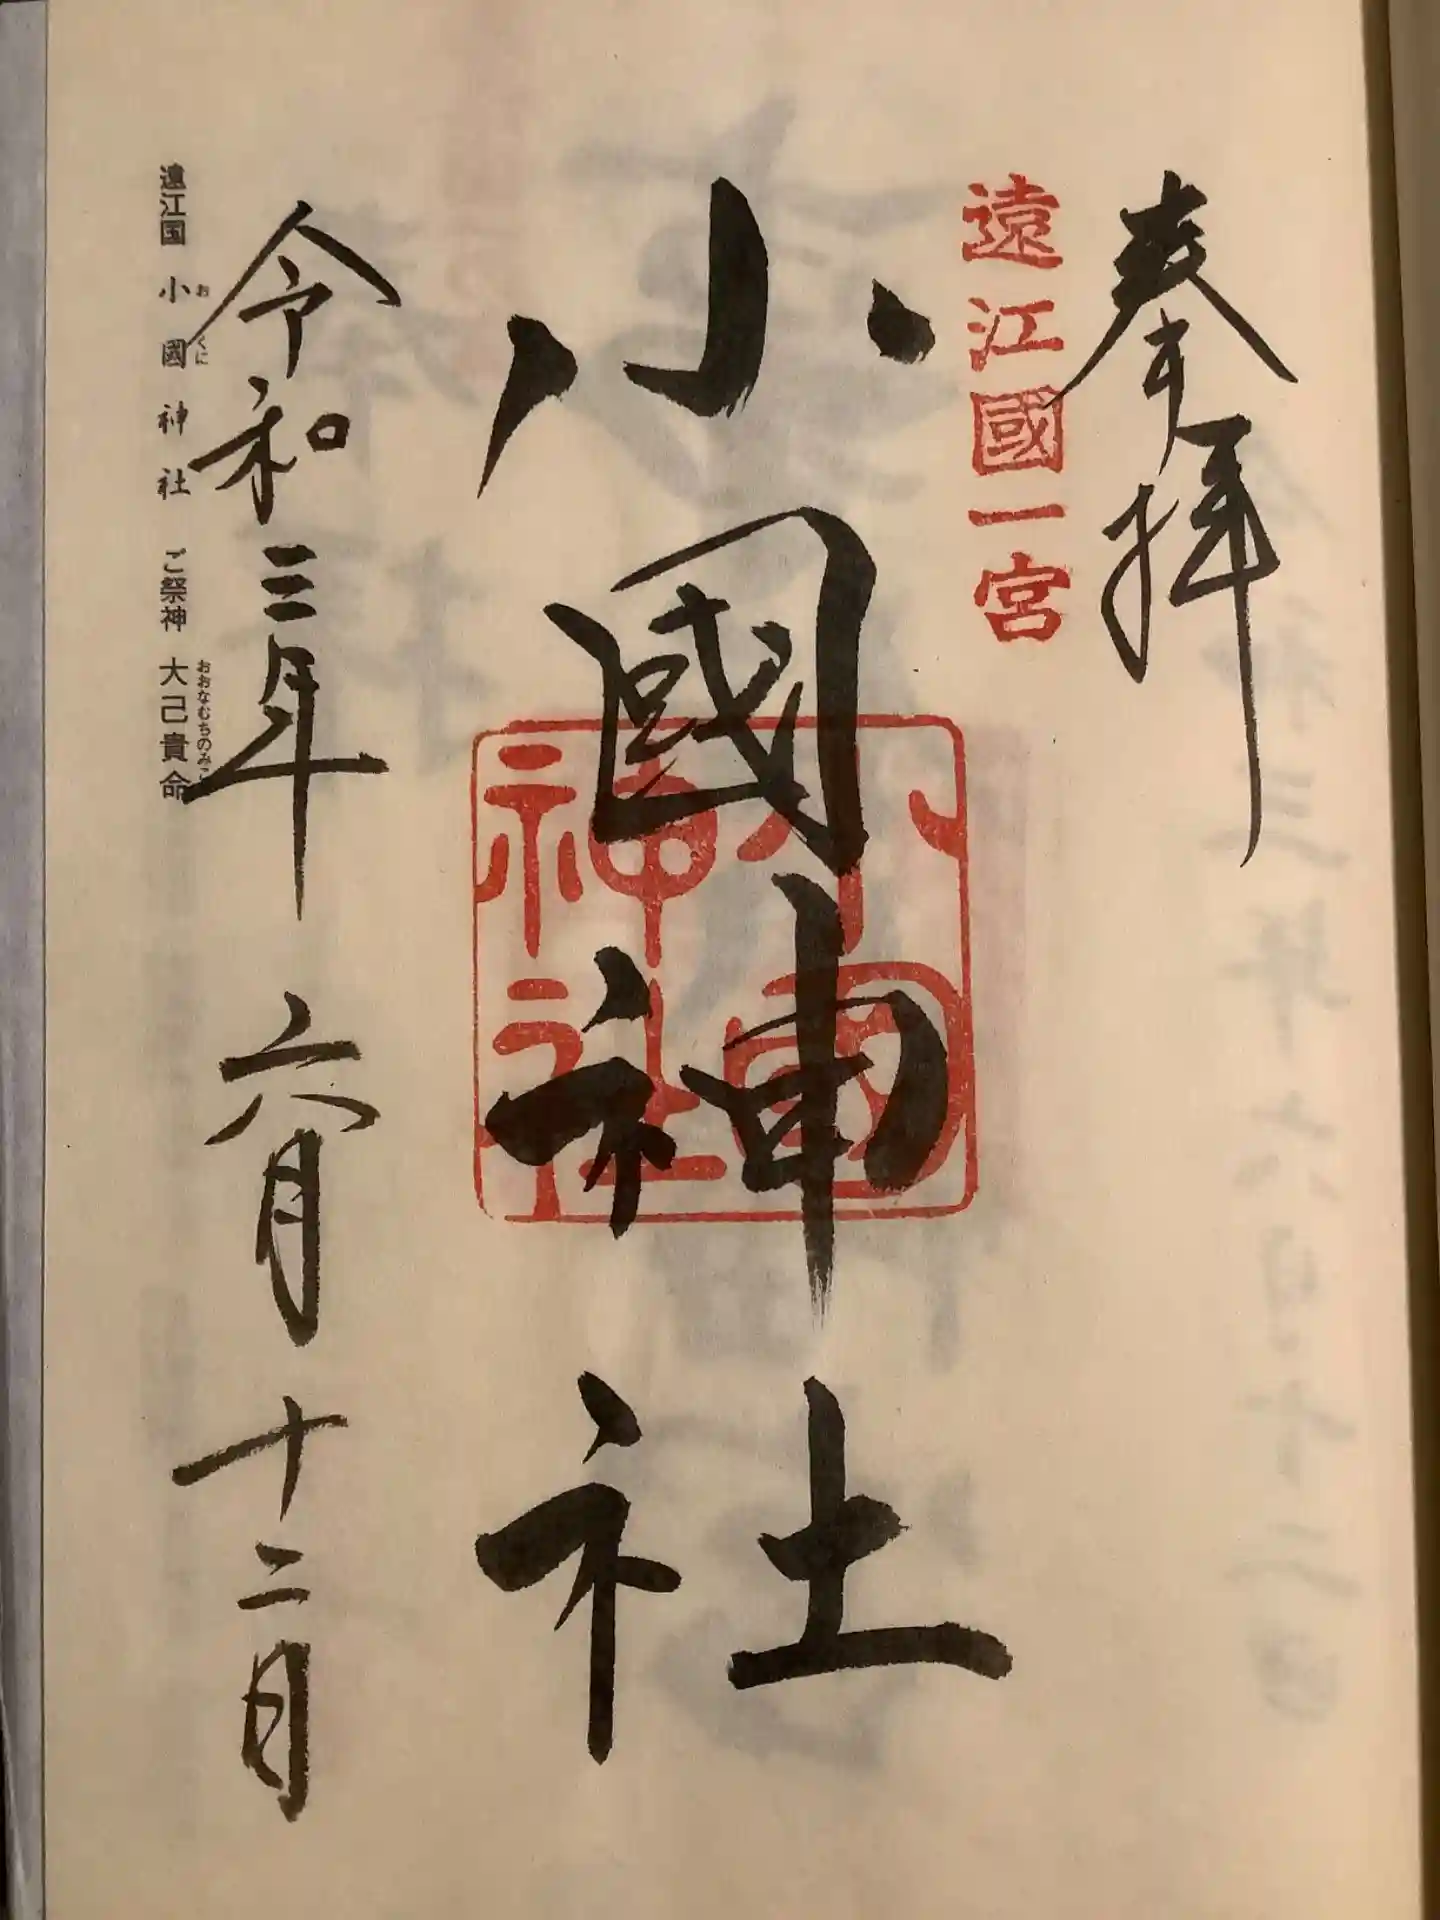 奉拝
遠江國一宮
小國神社
小國神社
令和三年六月十二日
遠江国 小國神社 ご祭神 大己貴命
お くに おおなむちのみこ